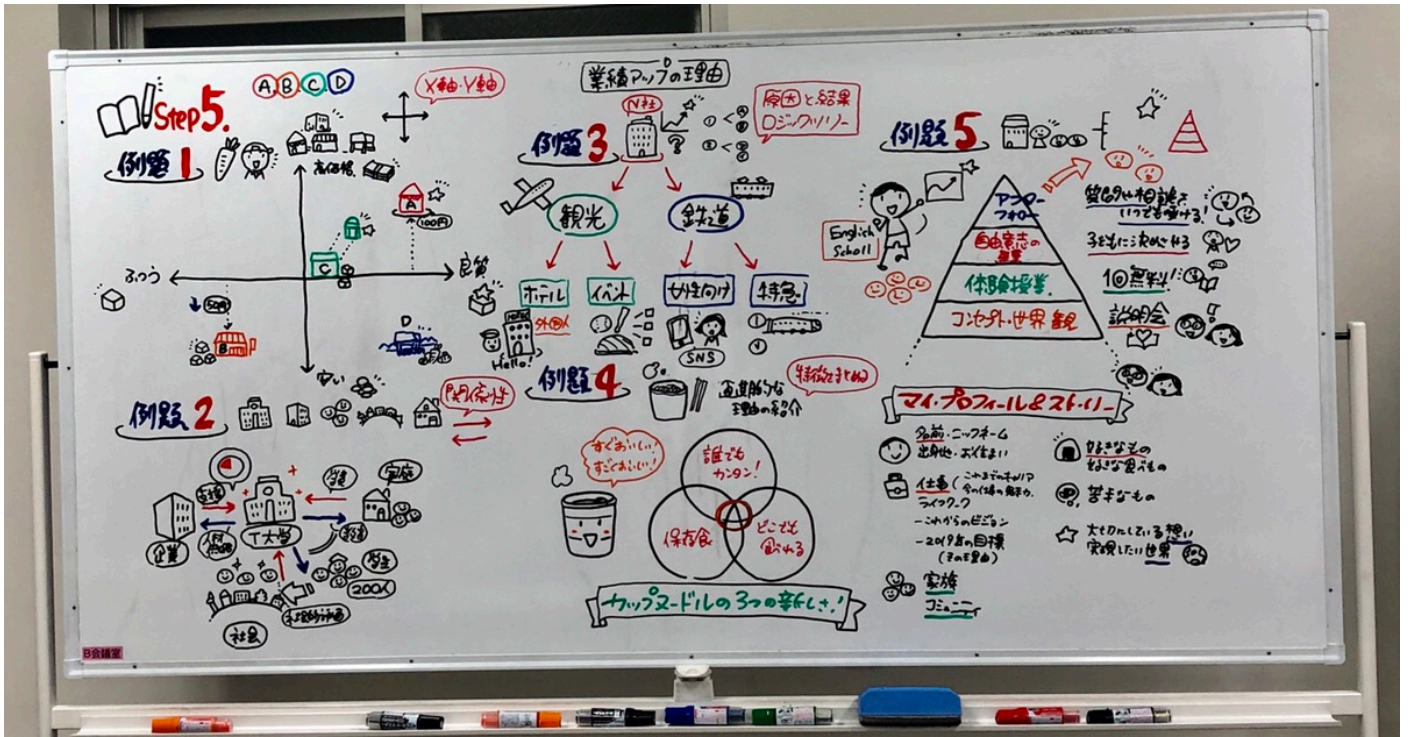 Step 5.
A B C D
X軸・Y軸
例題 1
高価格
A
100円
C
ふつう
良質
50円
B
D
安い
例題 2
関係性
支援
学費
家庭
企業
T大学
教育
学生
200人
社会
業績アップの理由
例題 3
N社
原因と結果
ロジックツリー
①
②
観光
鉄道
ホテル
イベント
女性向け
特急
HOTEL
外国人
Hello!
SNS
①
例題 4
理由の紹介
特徴をまとめる
すぐおいしい!
すごくおいしい!
誰でも
カンタン!
保存食
どこでも
食べれる
カップヌードルの3つの新しさ!
例題 5
English
Scholl
アフター
フォロー
自由意志の
体験授業
コンセプト・世界観
質問や相談を
いつでも受ける!
子どもに決めさせる
1回無料!
説明会
マイ・プロフィール&ストーリー
名前・ニックネーム
出身地・お住まい
仕事
これまでのキャリア
ライフワーク
-これからのビジョン
-2019年の目標
(その理由)
家族
コミュニティ
好きなもの
好きな食べもの
苦手なもの
大切にしている想い
実現したい世界
B会議室